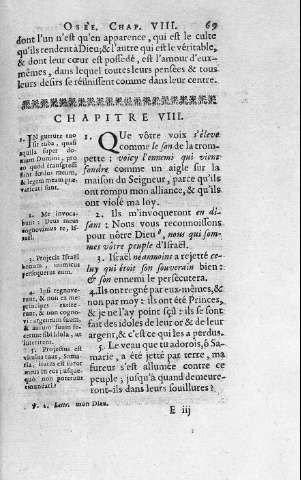 OSÉE. CHAP. VIII. 69
dont l'un n'est qu'en apparence, qui est le culte
qu'ils rendent à Dieu; & l'autre qui est le véritable,
& dont leur cœur est possedé, est l'amour d'eux-
mêmes, dans lequel toutes leurs pensées & tous
leurs desirs se réünissent comme dans leur centre.
CHAPITRE VIII.
1. IN gutture tuo
sit tuba, quasi
aquila super do-
mum Domini, pro
eo quòd transgressi
sunt fœdus meum,
& legem meam præ-
varicati sunt.
2. Me invoca-
bunt: Deus meus
cognovimus te, Is-
raël.
3. Projecit Israël
bonum, inimicus
persequetur eum.
4. Ipsi regnave-
runt, & non ex me:
principes extite-
runt, & non cogno-
vi: argentum suum
& aurum suum fe-
cerunt sibi idola, ut
interirent.
5. Projectus est
vitulus tuus, Sama-
ria, iratus est furor
meus in eos; usque-
quo non poterunt
emundari?
1. QUe vôtre voix s'éleve
comme le son de la trom-
pette; voicy l'ennemi qui vient
fondre comme un aigle sur la
maison du Seigneur, parce qu'ils
ont rompu mon alliance, & qu'ils
ont violé ma loy.
2. Ils m'invoqueront en di-
sant: Nous vous reconnoissons
pour nôtre Dieu, nous qui som-
mes vôtre peuple d'Israël.
3. Israël néanmoins a rejetté ce-
luy qui étoit son souverain bien:
& son ennemi le persecutera.
4. Ils ont regné par eux-mêmes, & non
par moy: ils ont été Princes,
& je ne l'ay point sçû: ils se sont
fait des idoles de leur or & de leur
argent, & c'est ce qui les a perdus.
5. Le veau que tu adorois, ô Sa-
marie, a été jetté par terre, ma
fureur s'est allumée contre ce
peuple; jusqu'à quand demeure-
ront-ils dans leurs souïllures?
℣. 2. Lettr. mon Dieu.
E iij